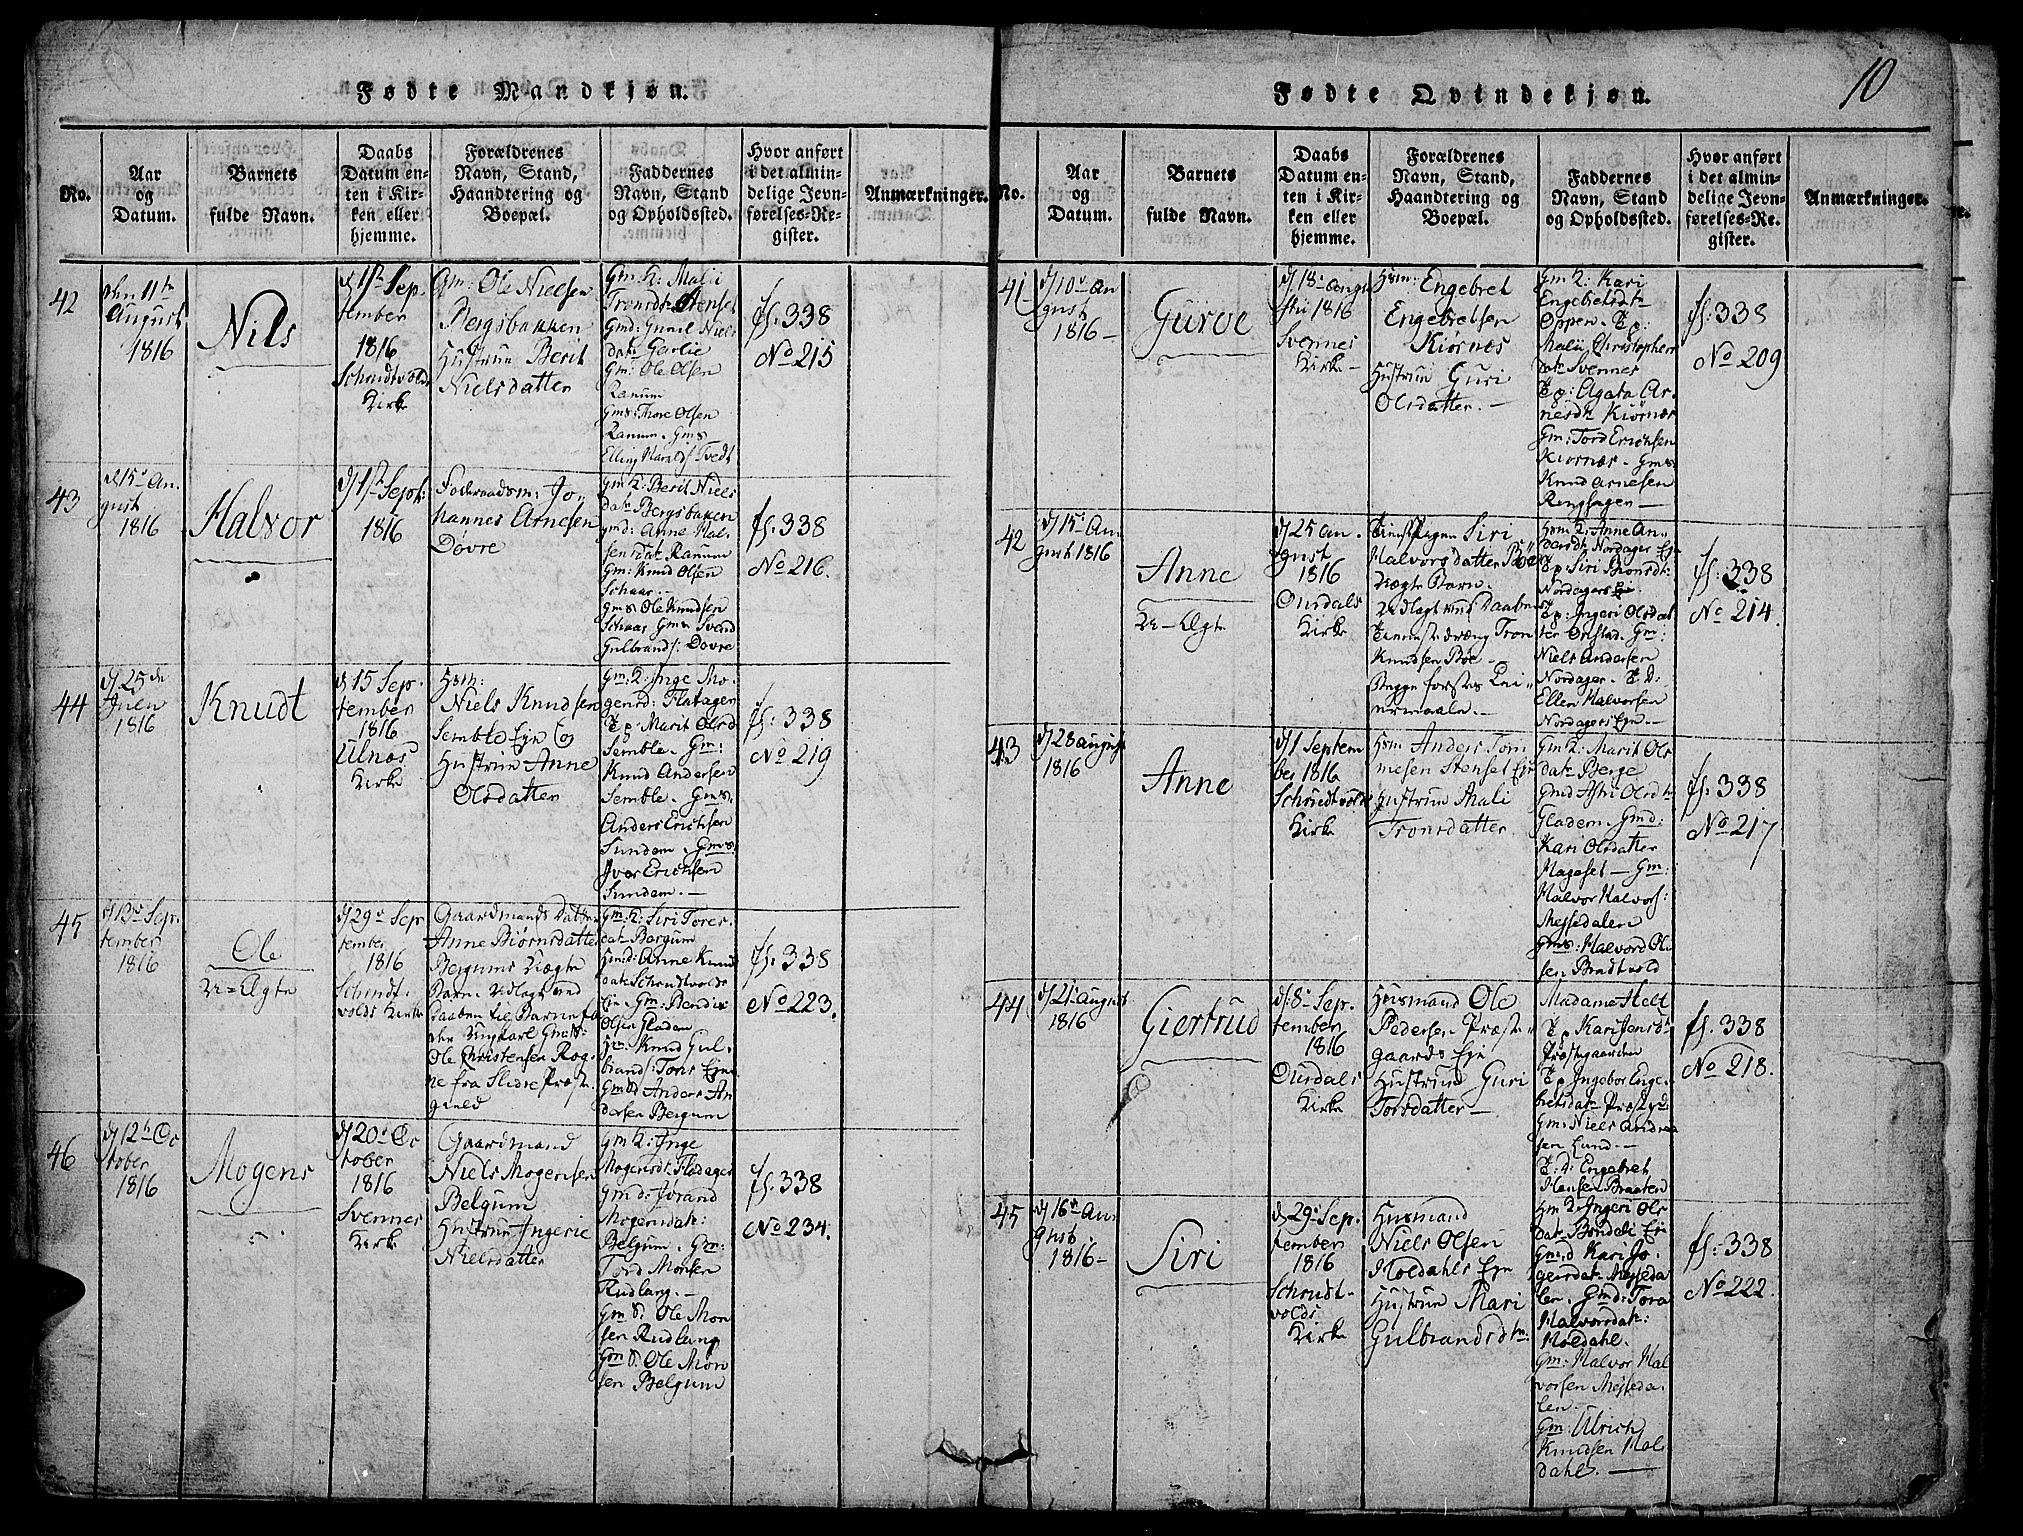 10
Fødte Mandkjøn.
No.
Aar
og
Datum.
Barnets
fulde Navn.
Daabs
Datum en-
ten i Kir-
ken eller
hjemme.
Forældrenes
Navn, Stand,
Haandtering og
Boepæl.
Faddernes
Navn, Stand
og Opholdssted.
Hvor anført
i det almin-
delige Jevn-
førelses-Re-
gister.
Anmærkninger.
42
den 11te
August
1816
Nils
d 1ste Sep-
tember
1816
Schrudtvolds
Kirke
Gm: Ole Nielsen
Bergsbakken
Hustrue Berit
Nielsdatter
Gm: K: Mali
Tronsdtr Stenset
Gmd: Gunil Niels
datr Garlie
Gm: Ole Olsen
Ranum
Gms: Thore Olsen
Ranum. Gms
Elling Haralds Svedt
fs. 338
No 215
43
d 15de Au-
gust
1816
Halvor
d 1ste Sept:
1816
Foderaadsm: Jo-
hannes Arnesen
Dovre
Gm: K: Berit Niels
datr Bergsbaken
Gmd: Anne Hal-
sensdatr Ranum
Gm: Knud Olsen
Schaar.-
Gms Ole Knudsen
Schaar Gms Svend
Gulbrands: Dovre
fs. 338
No 216.
44
d 25de
Julen
1816
Knudt
d 15 Sep-
tember
1816
Ulnæs
Kirke
Hsm:
Niels Knudsen
Semble Eje og
Hustrue Anne
Olsdatter
Gm: K: Inge Mo-
gensd: Flatager
Pp: Marit Olsd
Semble. Gm:
Knud Andersen
Semble. Gms.
Anders Erichsen
Sundem. Gms:
Iver Erichsen
Sundem.-
fs. 338
No 219
45
d 12te Sep-
tember
1816
Ole
U=Ægte
d 29de Sep
tember
1816
Schrudt-
volds Kirke
Gaardmands Datter
Anne Biørnsdatter
Bergums Uægte
Barn. Udlagt ved
Daaben til Barnefa-
der Ungkarl Gms:
Ole Christensen Rog-
ne fra Slidre Præste-
gield
Gm: K: Siri Tores-
datr Bergum
Hsmd: Anne Knud
datr Schrudtvolds
Eje. Gm: Bendix
Olsen Gladem
Hm: Knud Gul-
brands: Tons Eje
Gmd Anders An-
dersen Bergum
fs. 338
No 223.
46
d 12te Oc
tober
1816
Mogens
d 20de Oc
tober
1816
Svennes
Kirke
Gaardmand
Niels Mogensen
Belgum
Hustrue Ingerie
Nielsdatter
Gm K: Inge
Mogensdt: Fladager
Gmd: Jørand
Mogensdatr:
Belgum. Gm:
Tord Monsen
Rudlang.-
Gm S. Ole Mon
sen Rudlang
Gm S. Ole Mon
sen Belgum
fs. 338
No 234.
Fødte Qvindekjøn.
No.
Aar
og
Datum.
Barnets
fulde Navn.
Daabs
Datum en-
ten i Kir-
ken eller
hjemme.
Forældrenes
Navn, Stand,
Haandtering og
Boepæl.
Faddernes
Navn, Stand
og Opholdssted.
Hvor anført
i det almin-
delige Jevn-
førelses-Re-
gister.
Anmærkninger.
41
d 10de Au
gust
1816-
Gurve
d 18de Augu
sti 1816
Svennes
Kirke-
Hsm: Engebret
Engebretsen
Kiørnes
Hustrue Guri
Olsdatter.-
Gm K: Kari
Engebretsdtr
Oppen. Pp:
Mali Christophers
datr Svennes
Pp: Agata Ar-
nesdt: Kiørnæs
Gm: Tord Erichsen
Kiørnæs. Gms
Knud Arnesen
Ringsagen-
fs. 338
No 209
42
d 15de Au-
gust 1816
Anne
U-Ægte
d 25 Au-
gust
1816
Ourdals
Kirke
Siri
Halvorsdatter Bøes
Uægte Barn.
Udlagt ved Daaben
Tienestedræng Tron
Knudsen Bøe-
Begge forstes Lei-
ermaale.-
Hsm K: Anne An-
dersdt: Nordager Eje
Pp: Siri Bionsdtr
Nordagers Eje.
Pp: Ingeri Olsdat-
ter Onstad. Gm:
Niels Andersen
Nordager. P. D:
Ellen Halvorsen
Nordagers Eje.-
fs. 338
No 214.
43
d 28 August
1816
Anne
d 1 Septem
ber 1816
Schrudtvolds
Kirke
Hsm Anders Tom
mesen Stenset Eje
Hustrue Mali
Tronsdatter.
Gm K: Marit Ols
datr Berge
Gmd Astri Olsdtr
Gladem. Gmd:
Kari Olsdatter
Hageset - Gm:
Halvor Halvors:
Meysedalen
Gms: Halvord Ol-
sen Bradtvold
fs. 338
No 217
44
d 21de August
1816
Giertrud
d 8de Sep-
tember
1816
Ourdals
Kirke
Husmand Ole
Pedersen Præste-
gaards Eje
Hustrue Guri
Torsdatter-
Madame Helt
Pp Kari Jensdtr
Præstegaarden
Pp Ingebor Enge-
bretsdatr Præstegd:
Gm: Niels Andrea
sen Lund.-
P. D: Engebret
Hansen Braaten
fs. 338
No 218.
45
d 16de Au-
gust
1816-
Siri
d 29de Sep-
tember
1816
Schrudt-
volds
Kirke
Husmand
Niels Olsen
Moldahls Eje
Hustrue Mari
Gulbrandsdtr:
Hm K: Ingeri Ols
datr Bondeli Eje
Gmd Kari Jo-
gensdatr Meyseda
len. Gmd: Tora
Halvorsdatr:
Moldahl.
Gm: Halvor Hal
vorsen Meyseda-
len.-
Gm: Ulrich
Knudsen Mol-
dahl.-
fs. 338
No 222.